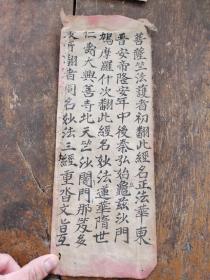 菩薩竺法護者初翻此經名正法華東
晉安帝隆安年中後秦弘始龜茲沙門
鳩摩羅什次翻此經名妙法蓮華隋世
仁壽大興善寺北天竺沙闍門那笈多
後所翻者同名妙法三經重沓文旨互